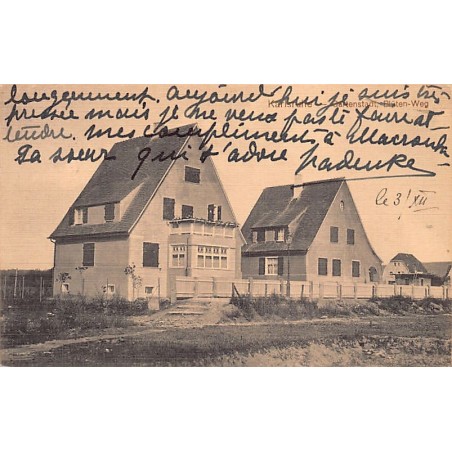 longuement. aujourd'hui je suis très
Karlsruhe Gartenstadt, Blüten-Weg
pressée mais je ne veux pas te faire at-
tendre. mes compliments à
Ta soeur qui t'adore
le 3/XII